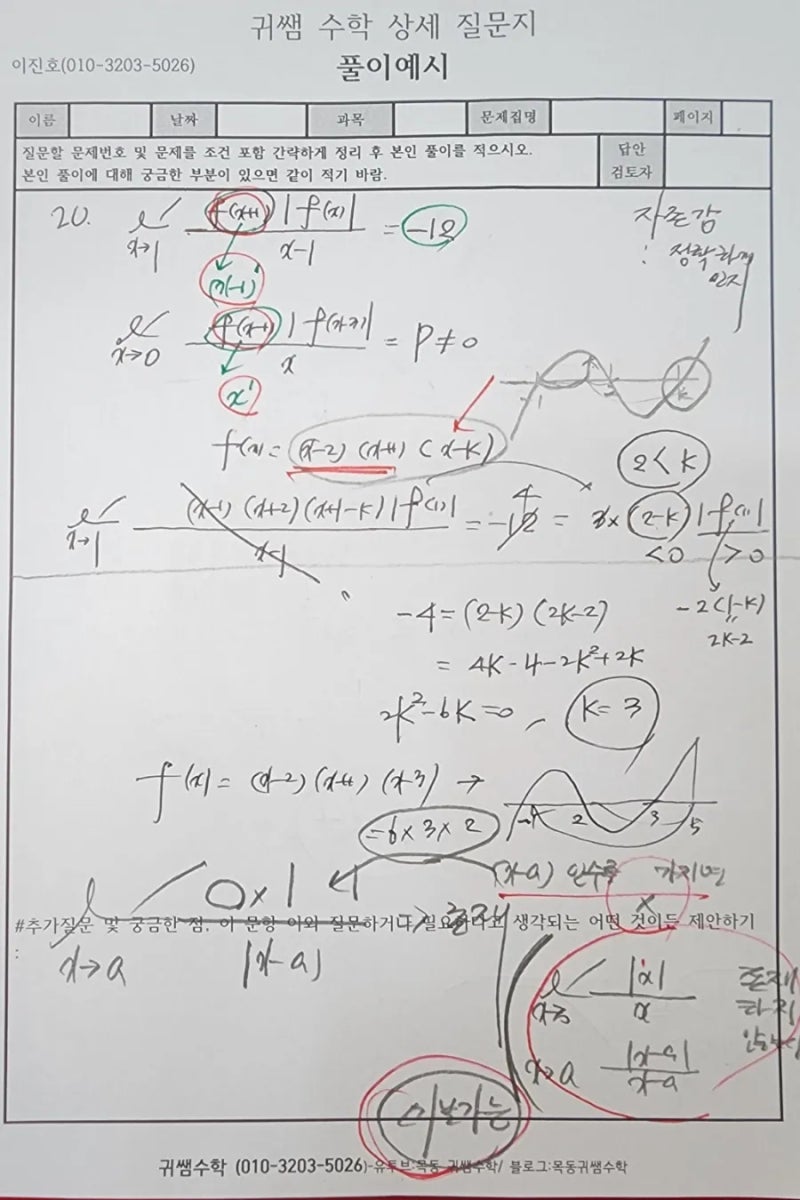 귀쌤 수학 상세 질문지
이진호(010-3203-5026)
풀이예시
이름 날짜 과목 문제집명 페이지
질문할 문제번호 및 문제를 조건 포함 간략하게 정리 후 본인 풀이를 적으시오.
본인 풀이에 대해 궁금한 부분이 있으면 같이 적기 바람.
답안
검토자
20. x→1 f(x+1)|f(x)| / x-1 = -12
(x-1)'
자존감
: 정확하게
인지
x→0 |f(x+3)| / x = P≠0
x'
-1 2 k
f(x) = (x-2)(x+1)(x-k)
2<k
x→1 (x-1)(x+2)(x+1-k)|f(1)| / x-1 = -12 = 3×(2-k)|f(1)|
4
<0 >0
-2(1-k)
2k-2
-4 = (2-k)(2k-2)
= 4k-4-2k²+2k
2k²-6k=0, k=3
f(x) = (x-2)(x+1)(x-3) →
-1 2 3 5
=6×3×2
(x-a) 인수를 가지면
x→a 0×1 / |x-a| → 존재
#추가질문 및 궁금한 점, 이 문항 이외 질문하거나 필요하다고 생각되는 어떤 것이든 제안하기
:
|x| / x 존재
하지
x→a |x-a| / x-a
미분가능
귀쌤수학 (010-3203-5026)-유튜브:목동 귀쌤수학/ 블로그:목동귀쌤수학